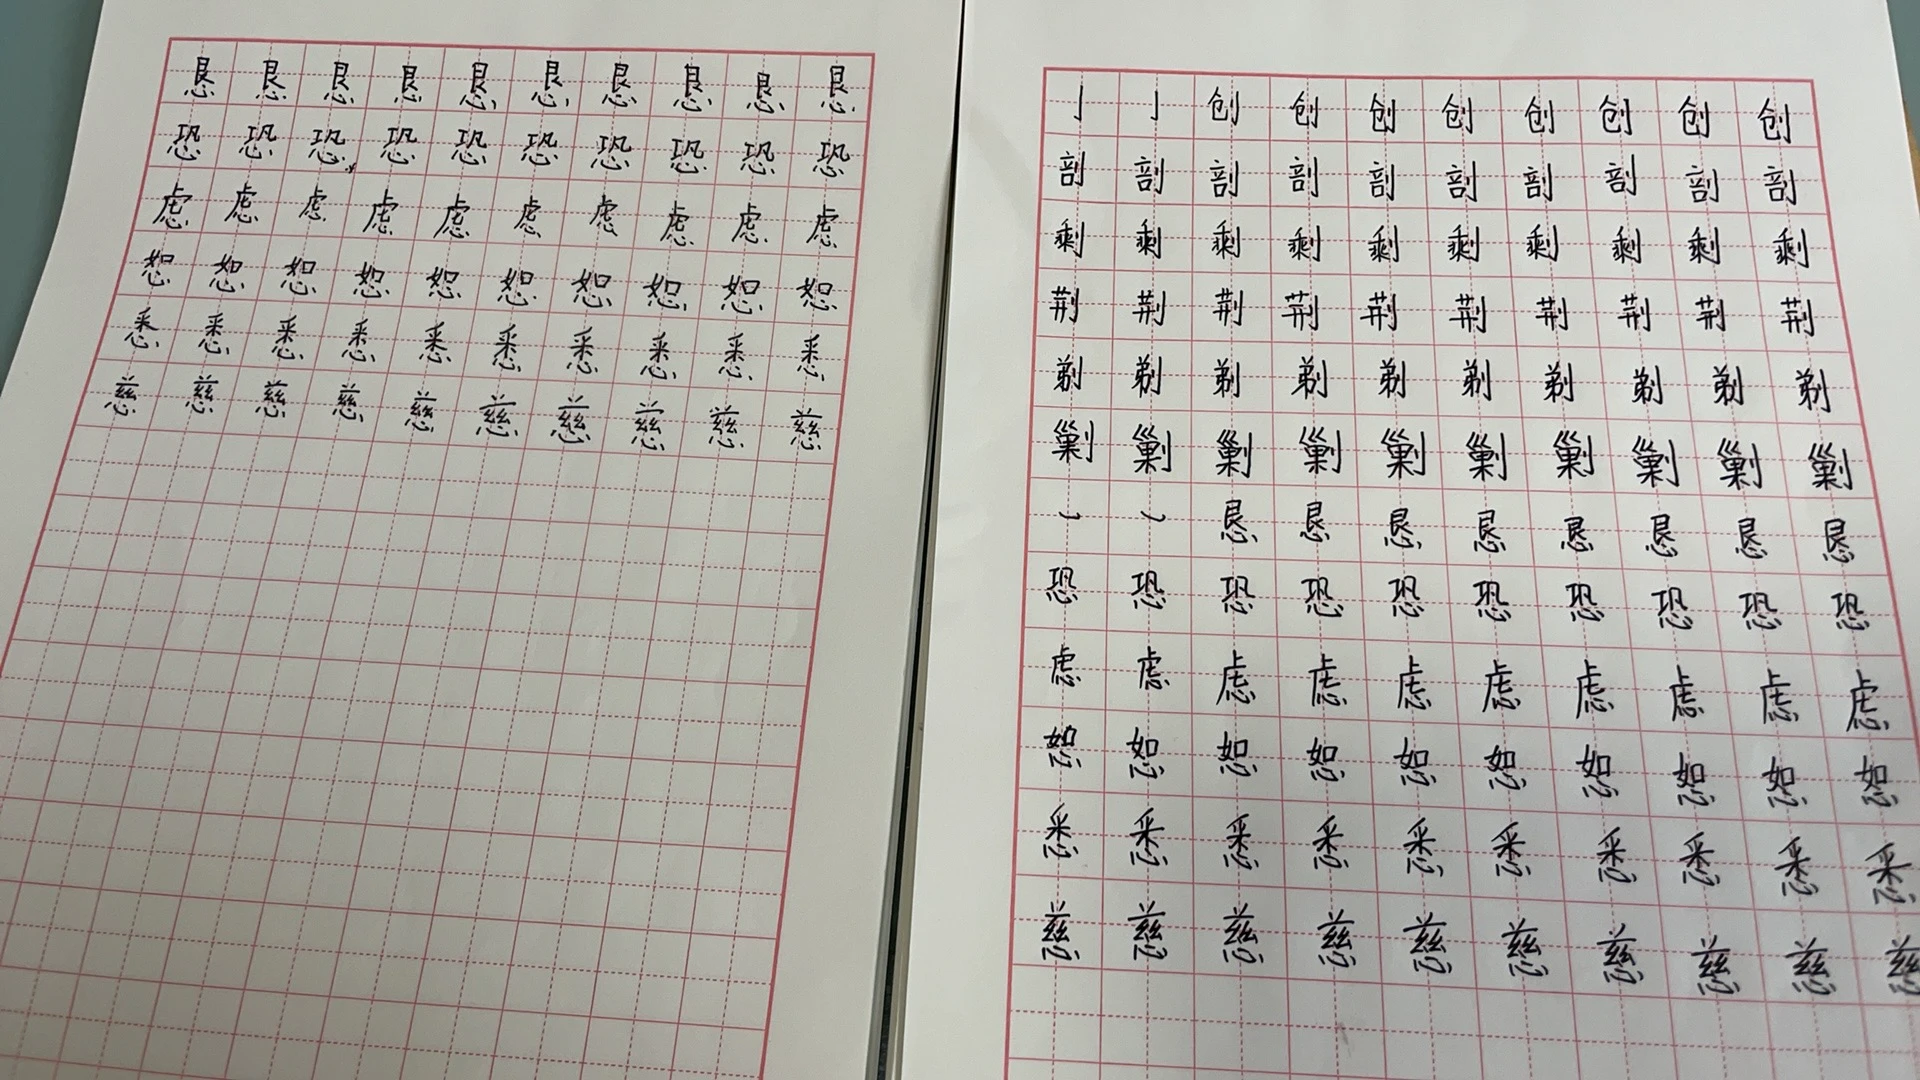 恳恳恳恳恳恳恳恳恳恳
恐恐恐恐恐恐恐恐恐恐
虑虑虑虑虑虑虑虑虑虑
恕恕恕恕恕恕恕恕恕恕
悉悉悉悉悉悉悉悉悉悉
慈慈慈慈慈慈慈慈慈慈
亅亅创创创创创创创创
剖剖剖剖剖剖剖剖剖剖
剩剩剩剩剩剩剩剩剩剩
荆荆荆荆荆荆荆荆荆荆
剃剃剃剃剃剃剃剃剃剃
剿剿剿剿剿剿剿剿剿剿
㇃㇃恳恳恳恳恳恳恳恳
恐恐恐恐恐恐恐恐恐恐
虑虑虑虑虑虑虑虑虑虑
恕恕恕恕恕恕恕恕恕恕
悉悉悉悉悉悉悉悉悉悉
慈慈慈慈慈慈慈慈慈慈